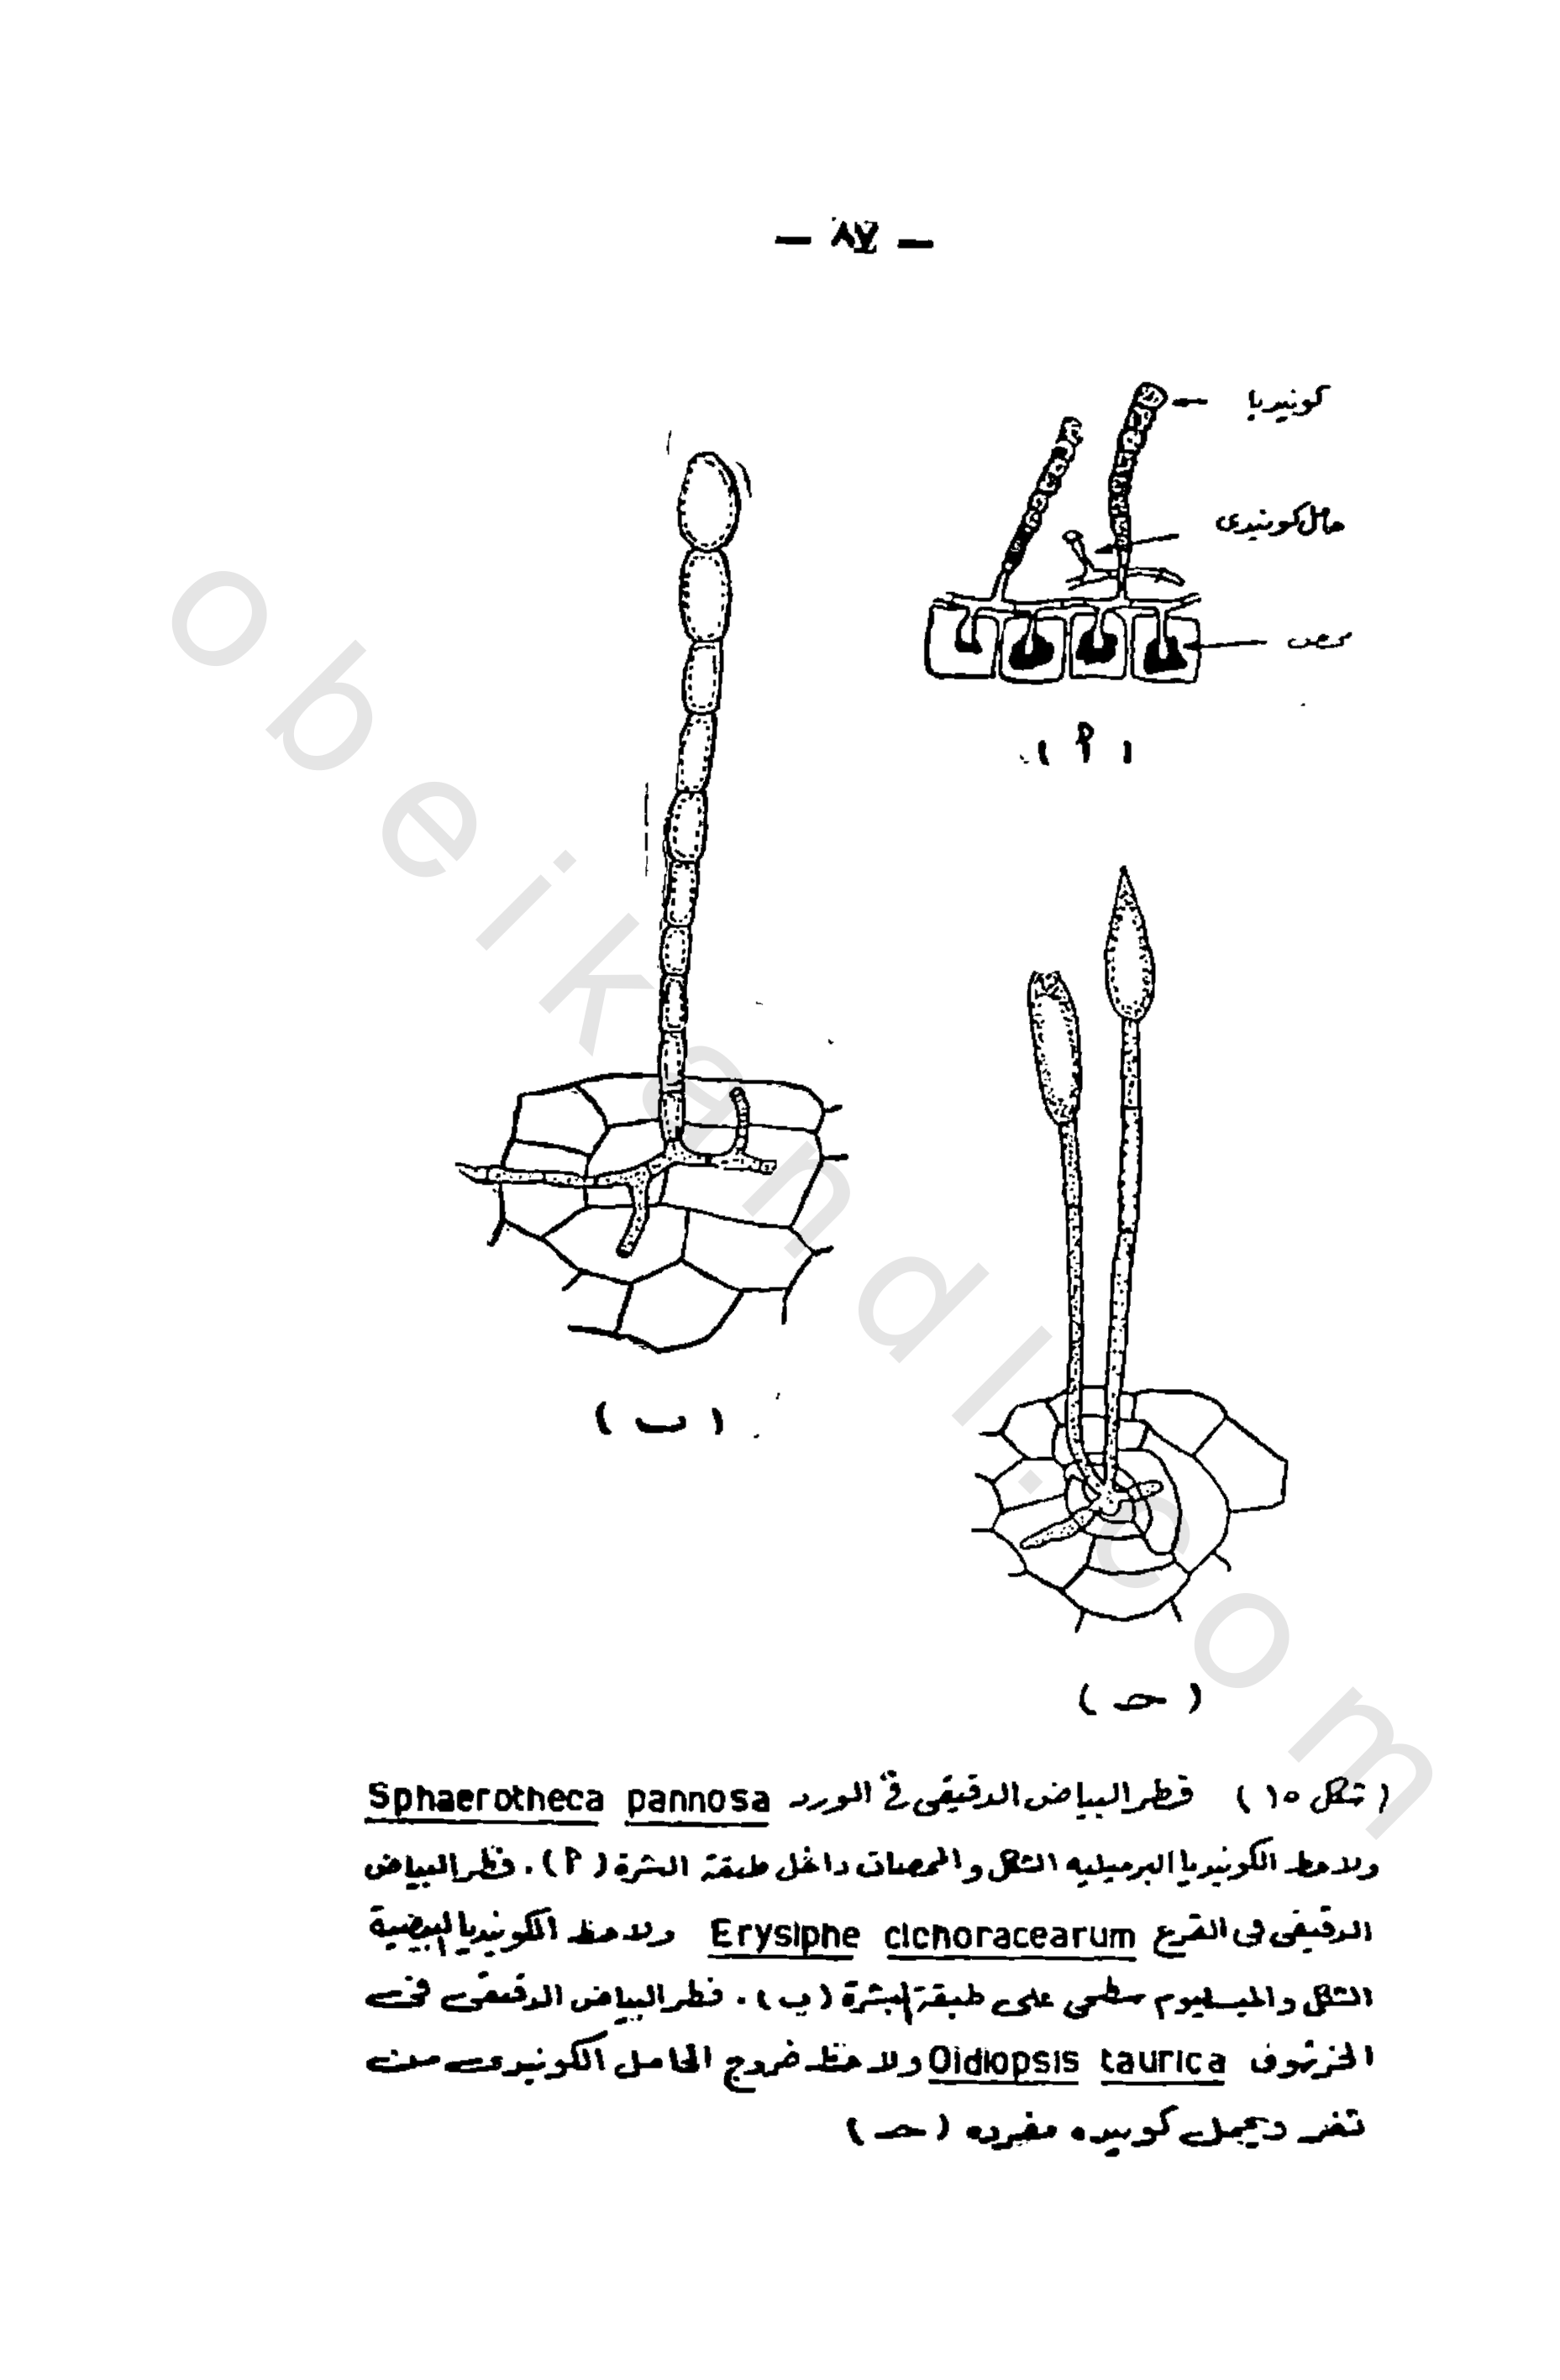 — ٨٧ —
كونيديا
حامل كونيدى
ممص
( أ )
( ب )
( حـ )
( شكل ١٥ ) فطر البياض الدقيقى فى الورد Sphaerotheca pannosa
ولاحظ الكونيديا البرميليه الشكل والممصات داخل طبقة البشرة ( أ ) . فطر البياض
الدقيقى فى القرع Erysiphe cichoracearum ولاحظ الكونيديا البيضية
الشكل والميسليوم سطحى على طبقة البشرة ( ب ) . فطر البياض الدقيقى فى
الخرشوف Oidiopsis taurica ولاحظ خروج الحامل الكونيدى من
ثغر ويحمل كونيده مفرده ( حـ )
obeikandl.com